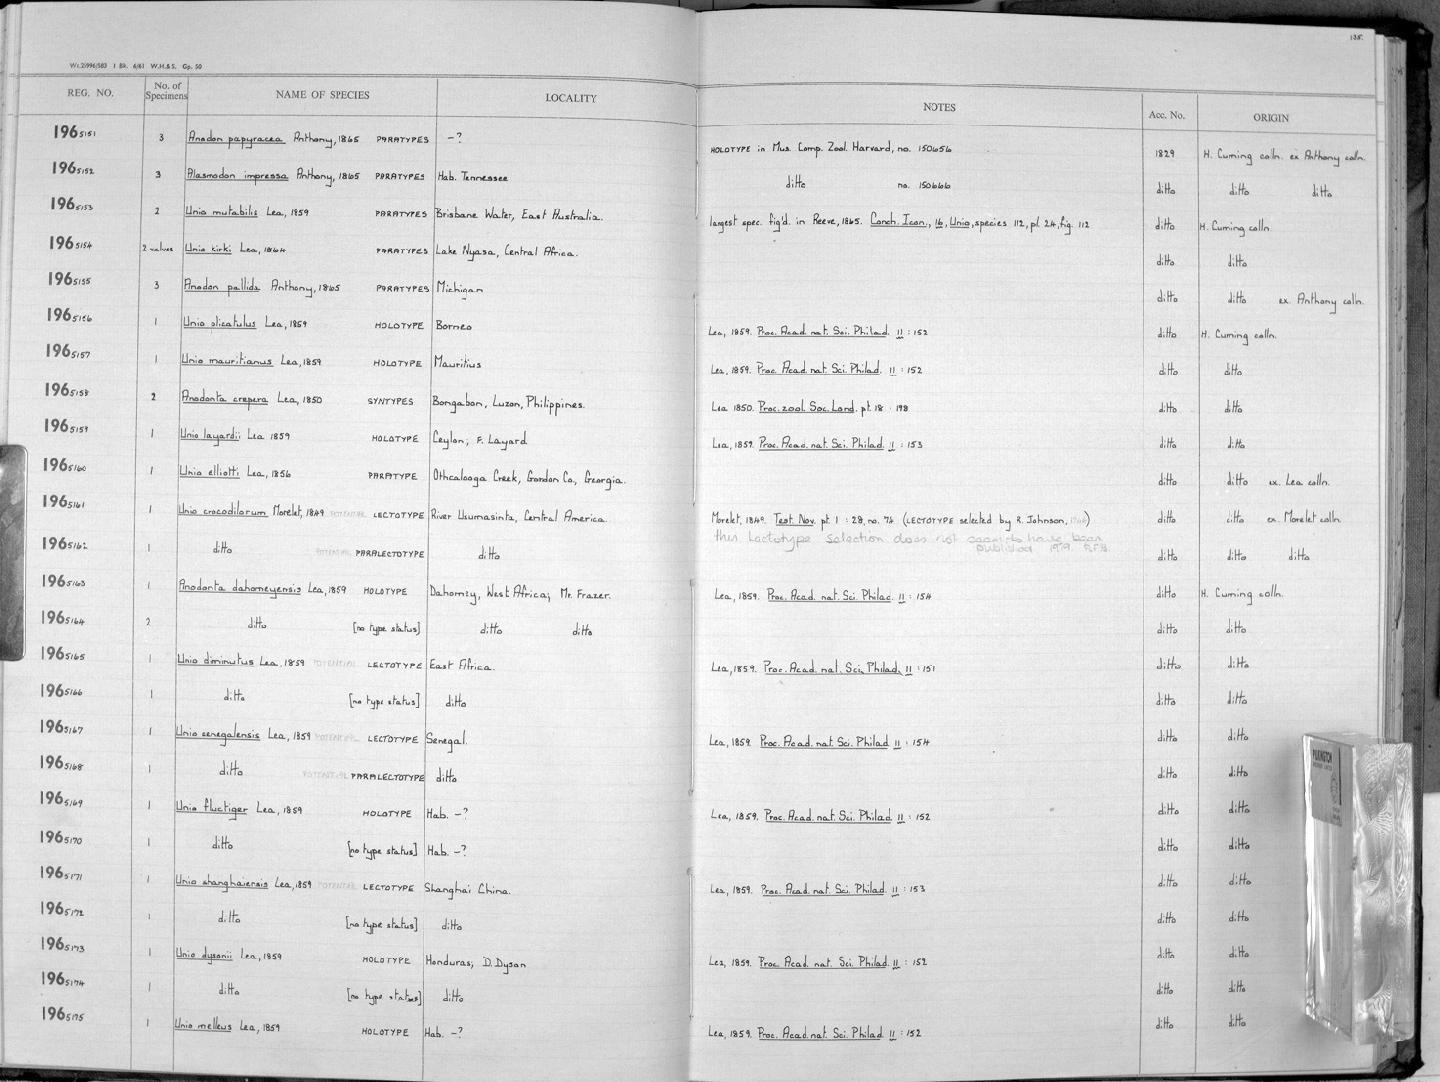 135.
Wt.2/996/583 1 Bk. 6/61 W.H.&S. Gp. 50
REG. NO. No. of Specimens NAME OF SPECIES LOCALITY NOTES Acc. No. ORIGIN
1965151 3 Anodon papyracea Anthony, 1865 PARATYPES —? HOLOTYPE in Mus. Comp. Zool. Harvard, no. 150656 1829 H. Cuming colln. ex Anthony colln.
1965152 3 Alasmodon impressa Anthony, 1865 PARATYPES Hab. Tennessee ditto no. 150666 ditto ditto ditto
1965153 2 Unio mutabilis Lea, 1859 PARATYPES Brisbane Water, East Australia. largest spec. fig'd. in Reeve, 1865. Conch. Icon., 16, Unio, species 112, pl. 24, fig. 112 ditto H. Cuming colln.
1965154 2 valves Unio kirki Lea, 1864 PARATYPES Lake Nyasa, Central Africa. ditto ditto
1965155 3 Anodon pallida Anthony, 1865 PARATYPES Michigan ditto ditto ex. Anthony colln.
1965156 1 Unio plicatulus Lea, 1859 HOLOTYPE Borneo Lea, 1859. Proc. Acad. nat. Sci. Philad. 11 : 152 ditto H. Cuming colln.
1965157 1 Unio mauritianus Lea, 1859 HOLOTYPE Mauritius Lea, 1859. Proc. Acad. nat. Sci. Philad. 11 : 152 ditto ditto
1965158 2 Anodonta crepera Lea, 1850 SYNTYPES Bongabon, Luzon, Philippines. Lea 1850. Proc. zool. Soc. Lond. pt. 18 : 198 ditto ditto
1965159 1 Unio layardii Lea 1859 HOLOTYPE Ceylon; F. Layard Lea, 1859. Proc. Acad. nat. Sci. Philad. 11 : 153 ditto ditto
1965160 1 Unio elliotti Lea, 1856 PARATYPE Othcalooga Creek, Gordon Co., Georgia. ditto ditto ex. Lea colln.
1965161 1 Unio crocodilorum Morelet, 1849 POTENTIAL LECTOTYPE River Usumasinta, Central America. Morelet, 1849. Test. Nov. pt. 1 : 28, no. 74 (LECTOTYPE selected by R. Johnson, ) ditto ditto ex. Morelet colln.
this Lectotype selection does not seem to have been
published 1979.
1965162 1 ditto POTENTIAL PARALECTOTYPE ditto ditto ditto ditto
1965163 1 Anodonta dahomeyensis Lea, 1859 HOLOTYPE Dahomey, West Africa; Mr. Frazer. Lea, 1859. Proc. Acad. nat. Sci. Philad. 11 : 154 ditto H. Cuming colln.
1965164 2 ditto [no type status] ditto ditto ditto ditto
1965165 1 Unio diminutus Lea, 1859 POTENTIAL LECTOTYPE East Africa. Lea, 1859. Proc. Acad. nat. Sci. Philad. 11 : 151 ditto ditto
1965166 1 ditto [no type status] ditto ditto ditto
1965167 1 Unio senegalensis Lea, 1859 POTENTIAL LECTOTYPE Senegal. Lea, 1859. Proc. Acad. nat. Sci. Philad 11 : 154 ditto ditto
1965168 1 ditto POTENTIAL PARALECTOTYPE ditto ditto ditto
1965169 1 Unio fluctiger Lea, 1859 HOLOTYPE Hab. —? Lea, 1859. Proc. Acad. nat. Sci. Philad 11 : 152 ditto ditto
1965170 1 ditto [no type status] Hab. —? ditto ditto
1965171 1 Unio shanghaiensis Lea, 1859 POTENTIAL LECTOTYPE Shanghai China. Lea, 1859. Proc. Acad. nat. Sci. Philad. 11 : 153 ditto ditto
1965172 1 ditto [no type status] ditto ditto ditto
1965173 1 Unio dysonii Lea, 1859 HOLOTYPE Honduras; D. Dyson Lea, 1859. Proc. Acad. nat. Sci. Philad. 11 : 152 ditto ditto
1965174 1 ditto [no type status] ditto ditto ditto
1965175 1 Unio melleus Lea, 1859 HOLOTYPE Hab. —? Lea, 1859. Proc. Acad. nat. Sci. Philad. 11 : 152 ditto ditto
PILKINGTON